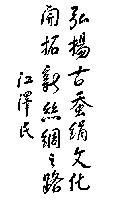 弘楊古蚕绢文化
開拓新絲绸之路
江澤民